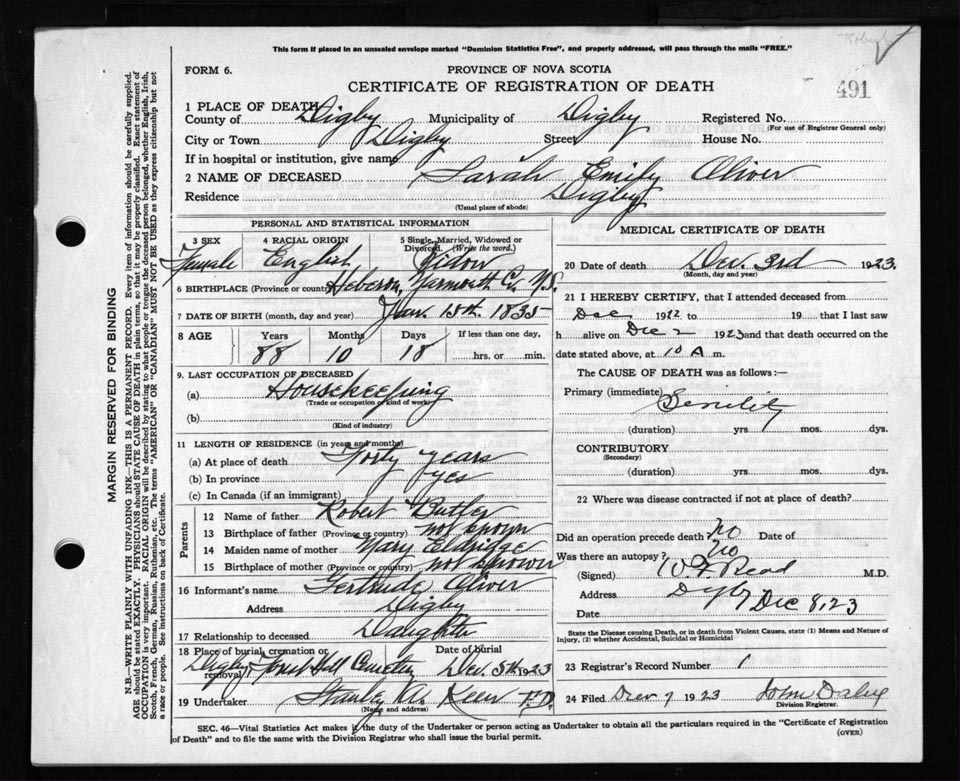 This form if placed in an unsealed envelope marked "Dominion Statistics Free", and properly addressed, will pass through the mails "FREE."
FORM 6.
PROVINCE OF NOVA SCOTIA
CERTIFICATE OF REGISTRATION OF DEATH
491
1 PLACE OF DEATH
County of Digby Municipality of Digby Registered No.
(For use of Registrar General only)
City or Town Digby Street House No.
If in hospital or institution, give name
2 NAME OF DECEASED Sarah Emily Oliver
Residence Digby
(Usual place of abode)
PERSONAL AND STATISTICAL INFORMATION
3 SEX Female
4 RACIAL ORIGIN English
5 Single, Married, Widowed or Divorced. (Write the word.) Widow
6 BIRTHPLACE (Province or country) Heberon, Yarmouth Co. N.S.
7 DATE OF BIRTH (month, day and year) Jan. 15th. 1835
8 AGE Years 88 Months 10 Days 18 If less than one day, hrs. or min.
9. LAST OCCUPATION OF DECEASED
(a) Housekeeping
(Trade or occupation or kind of work)
(b)
(Kind of industry)
11 LENGTH OF RESIDENCE (in years and months)
(a) At place of death Forty years
(b) In province yes
(c) In Canada (if an immigrant)
Parents
12 Name of father Robert Butler
13 Birthplace of father (Province or country) not known
14 Maiden name of mother Mary Eldridge
15 Birthplace of mother (Province or country) not known
16 Informant's name Gertrude Oliver
Address Digby
17 Relationship to deceased Daughter
18 Place of burial, cremation or removal Digby Forest Hill Cemetery Date of burial Dec. 5th 1923
19 Undertaker Stanley A. Keen
(Name and address)
MEDICAL CERTIFICATE OF DEATH
20 Date of death Dec. 3rd 1923.
(Month, day and year)
21 I HEREBY CERTIFY, that I attended deceased from
Dec 1922 to 19 that I last saw
h alive on Dec 2 1923 and that death occurred on
date stated above, at 10 A m.
The CAUSE OF DEATH was as follows:—
Primary (immediate) Senility
(duration) yrs mos. dys.
CONTRIBUTORY
(Secondary)
(duration) yrs. mos. dys.
22 Where was disease contracted if not at place of death?
Did an operation precede death No Date of
Was there an autopsy? No
(Signed) W. F. Read M.D.
Address Digby
Date Dec 8, 23
State the Disease causing Death, or in death from Violent Causes, state (1) Means and Nature of
Injury, (2) whether Accidental, Suicidal or Homicidal
23 Registrar's Record Number 1
24 Filed Dec 7 1923 John Daley
Division Registrar.
SEC. 46—Vital Statistics Act makes it the duty of the Undertaker or person acting as Undertaker to obtain all the particulars required in the "Certificate of Registration
of Death" and to file the same with the Division Registrar who shall issue the burial permit.
(OVER)
MARGIN RESERVED FOR BINDING
N.B.—WRITE PLAINLY WITH UNFADING INK—THIS IS A PERMANENT RECORD. Every item of information should be carefully supplied.
AGE should be stated EXACTLY. PHYSICIANS should STATE CAUSE OF DEATH in plain terms, so that it may be properly classified. Exact statement of
OCCUPATION is very important. RACIAL ORIGIN will be described by stating to what people or tongue the deceased person belonged, whether English, Irish,
Scotch, French, German, Russian, Ruthenian, etc. The terms "AMERICAN" or "CANADIAN" MUST NOT BE USED as they express citizenship but not
a race or people. See instructions on back of Certificate.